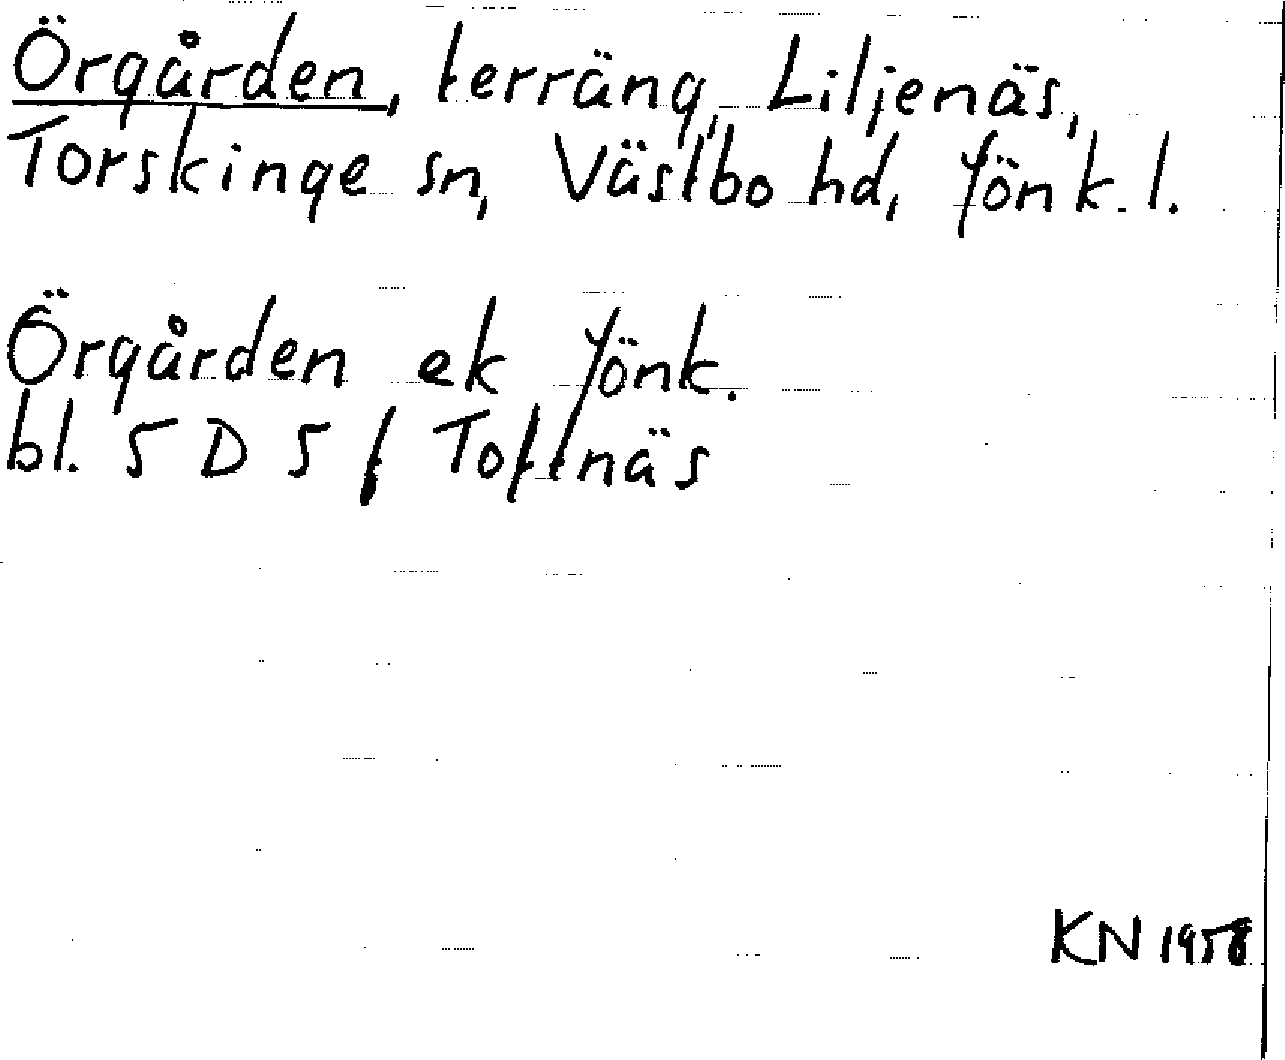 Örgården, terräng, Liljenäs,
Torskinge sn, Västbo hd, Jönk. l.
Örgården ek Jönk.
bl. 5 D 5 f Toftnäs
KN 1958